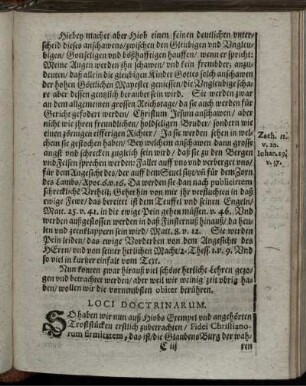 Hiebey machet aber Hiob einen feinen deutlichen unter-
scheid dieses anschawens/zwischen den Gleubigen und Ungleu-
bigen/ Gottseligen und boßhafftigen hauffen/ wenn er spricht:
Meine Augen werden ihn schawen/ und kein frembder; anzu-
deuten/ daß allein die gleubigen Kinder Gottes solch anschawen
der hohen Göttlichen Mayestet geniessen/ die Ungleubige scha-
re aber dessen gentzlich beraubet sein wird. Sie werden zwar
an dem allgemeinen grossen Reichstage/ da sie auch werden für
Gericht gefodert werden/ Christum Jesum anschawen/ aber
nicht wie ihren freundlichen/ holdseligen Bruder/ sondern wie
einen zornigen eifferigen Richter/ Ja sie werden sehen in wel-
chem sie gestochen haben/ Bey welchem anschawen dann grosse
angst und schrecken zugleich sein wird/ daß sie zu den Bergen
und Felsen sprechen werden: Fallet auff uns und verberget uns/
für dem Angesichte des/ der auff dem Stuel sitzt/ uñ für dem Zorn
des Lambs/ Apoc. 6. v. 16. Da werden sie dan nach publicirtem
schrecklichē Vrtheil: Gehet hin von mir ihr verfluchten in daß
ewige Fewr/ das bereitet ist dem Teuffel und seinen Engeln/
Matt. 25. v. 41. in die ewige Pein gehen müssen. v. 46. Und
werden außgestossen werden in daß Finsternuß hinauß/ da heu-
len und zeenklappern sein wird/ Matt. 8. v. 12. Sie werden
Pein leiden/ das ewige Vorderben von dem Angesichte des
HErrn/ und von seiner herlichen Macht/ 2. Thess. 1. v. 9. Und
so viel in kurtzer einfalt vom Text.
Zach. 12.
v. 10.
Iohan. 19.
v. 37.
Nun können zwar hierauß viel schöne herliche Lehren gezo-
gen und betrachtet werden/ aber weil wir wenig zeit übrig ha-
ben/ wollen wir die vornembsten vnter berühren.
LOCI DOCTRINARUM.
SO haben wir nun auß Hiobs Exempel und angehörten
Troststücken erstlich zubetrachten/ Fidei Christiano-
rum firmitatem, das ist/ die Glaubens Burg der wah-
C iij
ren